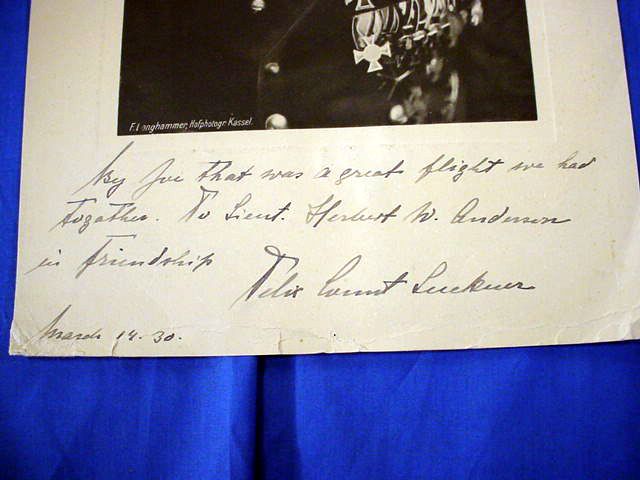 F. Langhammer, Hofphotogr. Kassel.
By Joe that was a great flight we had
togather. To Lieut. Herbert W. Anderson
in friendship
Felix Count Luckner
March 14. 30.